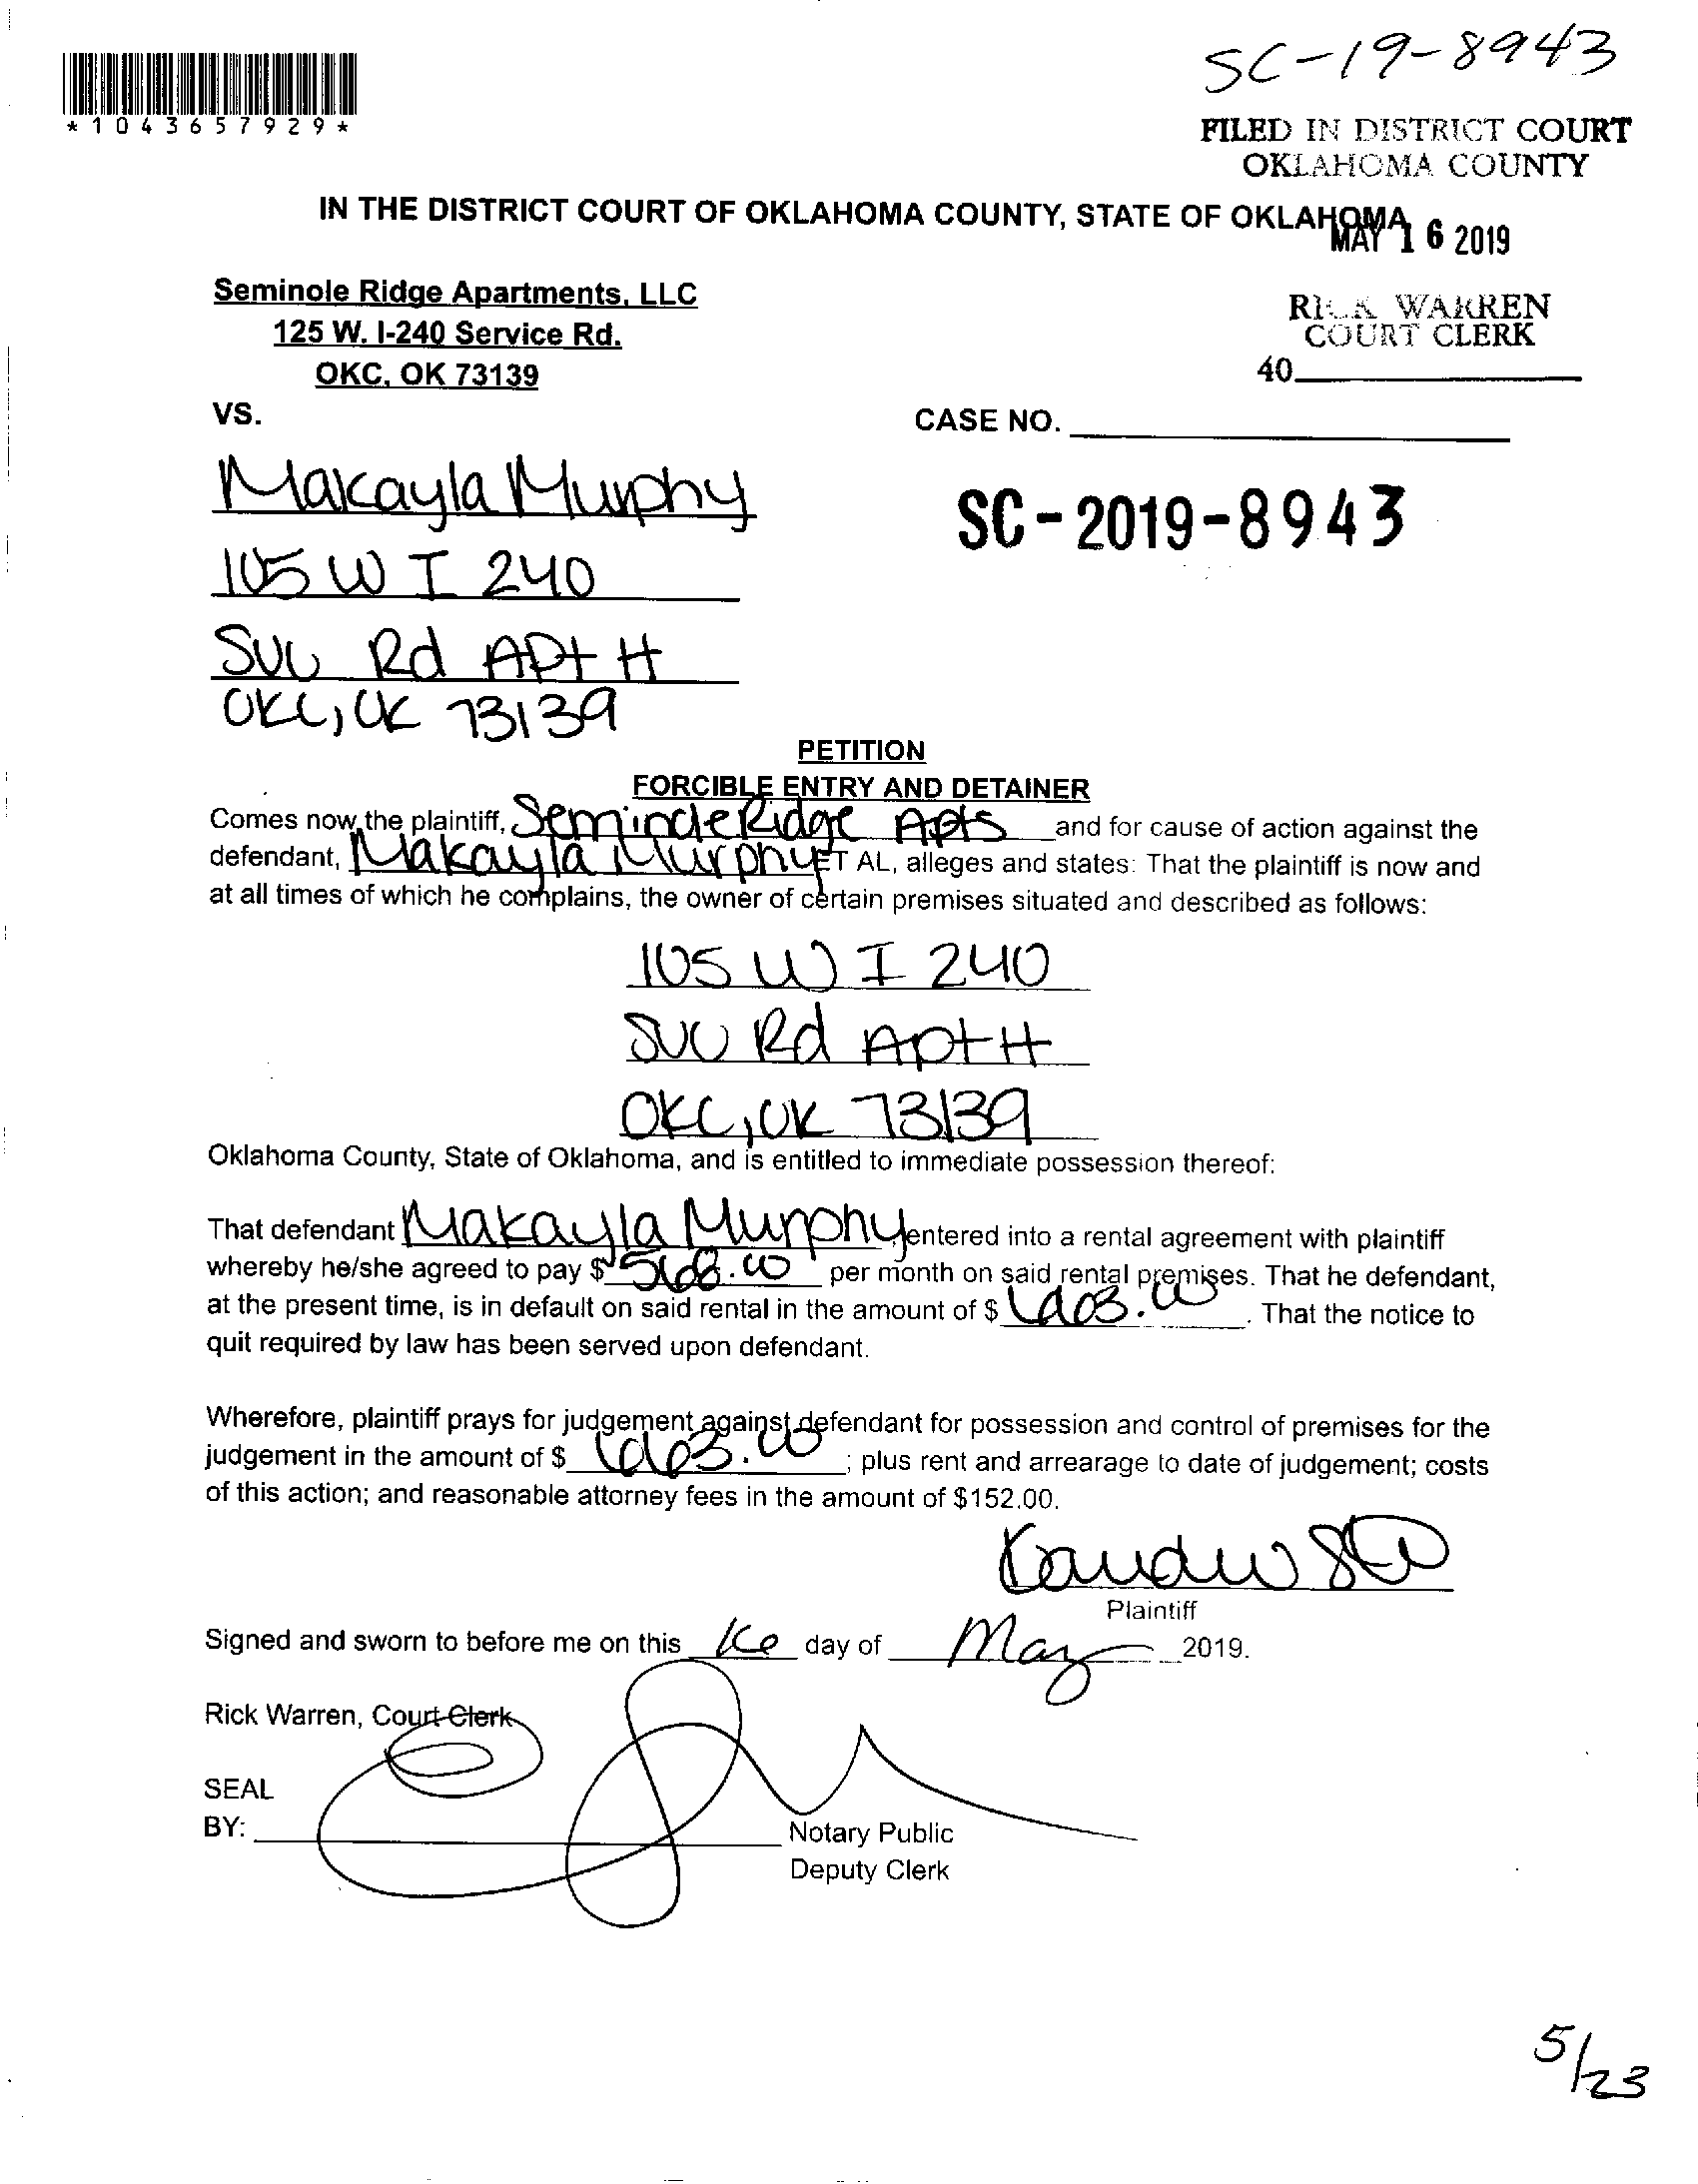 SC-19-8943
*1043657929*
FILED IN DISTRICT COURT
OKLAHOMA COUNTY
IN THE DISTRICT COURT OF OKLAHOMA COUNTY, STATE OF OKLAHOMA
MAY 16 2019
Seminole Ridge Apartments, LLC
125 W. I-240 Service Rd.
OKC, OK 73139
RICK WARREN
COURT CLERK
40
VS.
CASE NO.
Makayla Murphy
SC-2019-8943
105 W I 240
SVC Rd APt H
OKC, OK 73139
PETITION
FORCIBLE ENTRY AND DETAINER
Comes now the plaintiff, Seminole Ridge Apts and for cause of action against the
defendant, Makayla Murphy ET AL, alleges and states: That the plaintiff is now and
at all times of which he complains, the owner of certain premises situated and described as follows:
105 W I 240
SVC Rd Apt H
OKC, OK 73139
Oklahoma County, State of Oklahoma, and is entitled to immediate possession thereof:
That defendant Makayla Murphy, entered into a rental agreement with plaintiff
whereby he/she agreed to pay $ 568.00 per month on said rental premises. That he defendant,
at the present time, is in default on said rental in the amount of $ . That the notice to
quit required by law has been served upon defendant.
Wherefore, plaintiff prays for judgement against defendant for possession and control of premises for the
judgement in the amount of $ 663.00; plus rent and arrearage to date of judgement; costs
of this action; and reasonable attorney fees in the amount of $152.00.
Plaintiff
Signed and sworn to before me on this 16 day of May 2019.
Rick Warren, Court Clerk
SEAL
BY:
Notary Public
Deputy Clerk
5/23